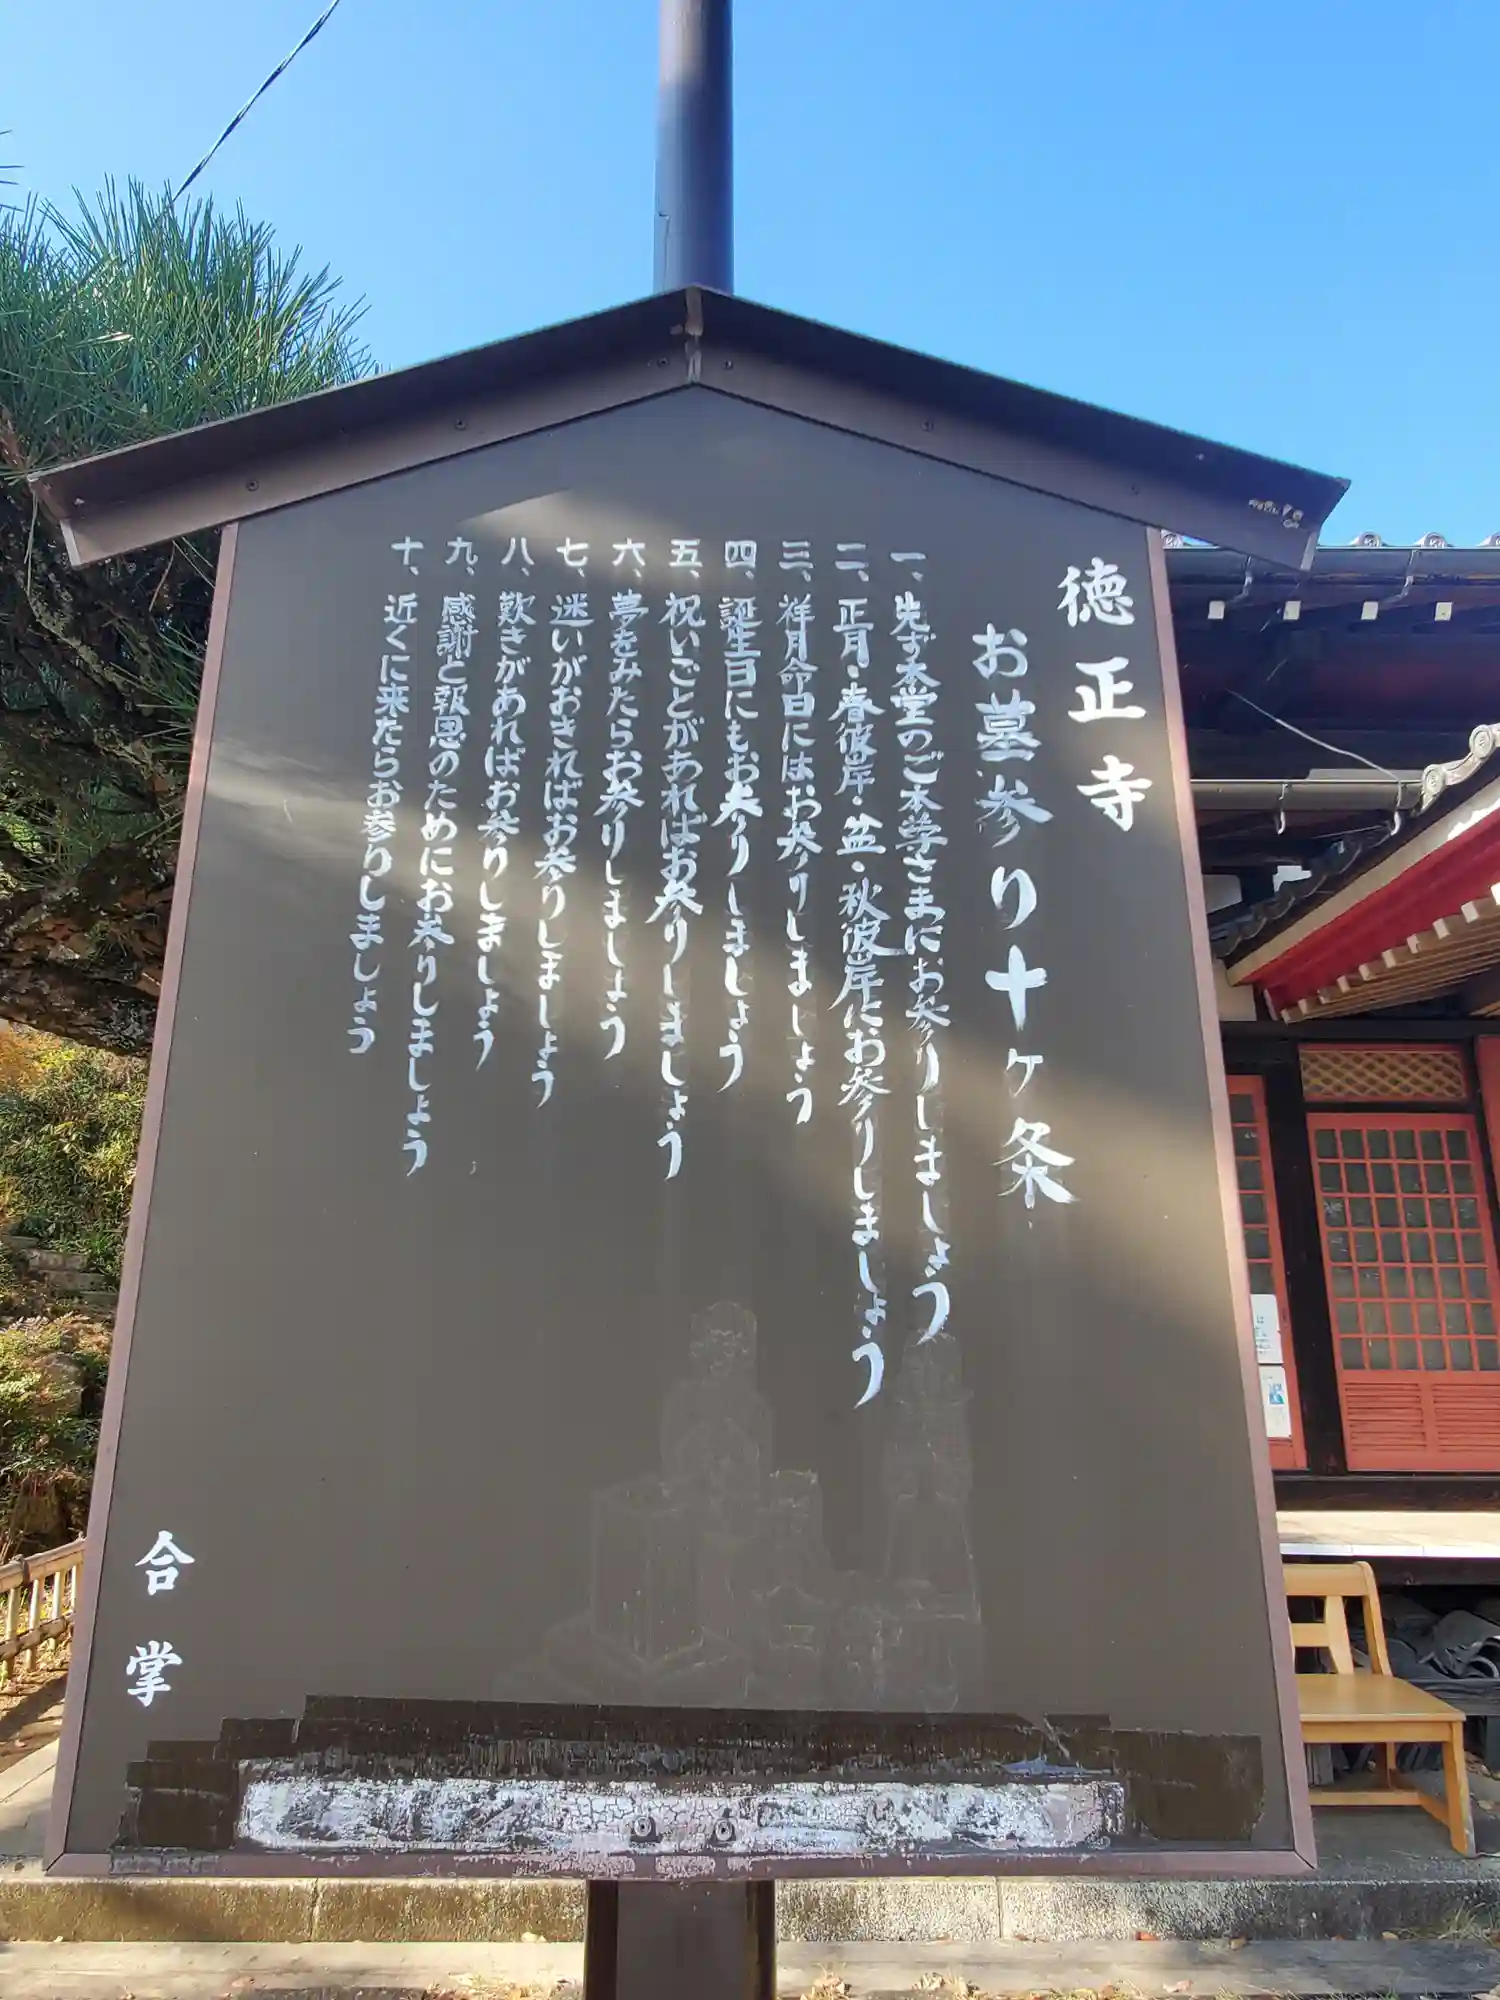 徳正寺
お墓参り十ケ条
一、先ず本堂のご本尊さまにお参りしましょう
二、正月・春彼岸・盆・秋彼岸にお参りしましょう
三、祥月命日にはお参りしましょう
四、誕生日にもお参りしましょう
五、祝いごとがあればお参りしましょう
六、夢をみたらお参りしましょう
七、迷いがおきればお参りしましょう
八、歎きがあればお参りしましょう
九、感謝と報恩のためにお参りしましょう
十、近くに来たらお参りしましょう
合掌